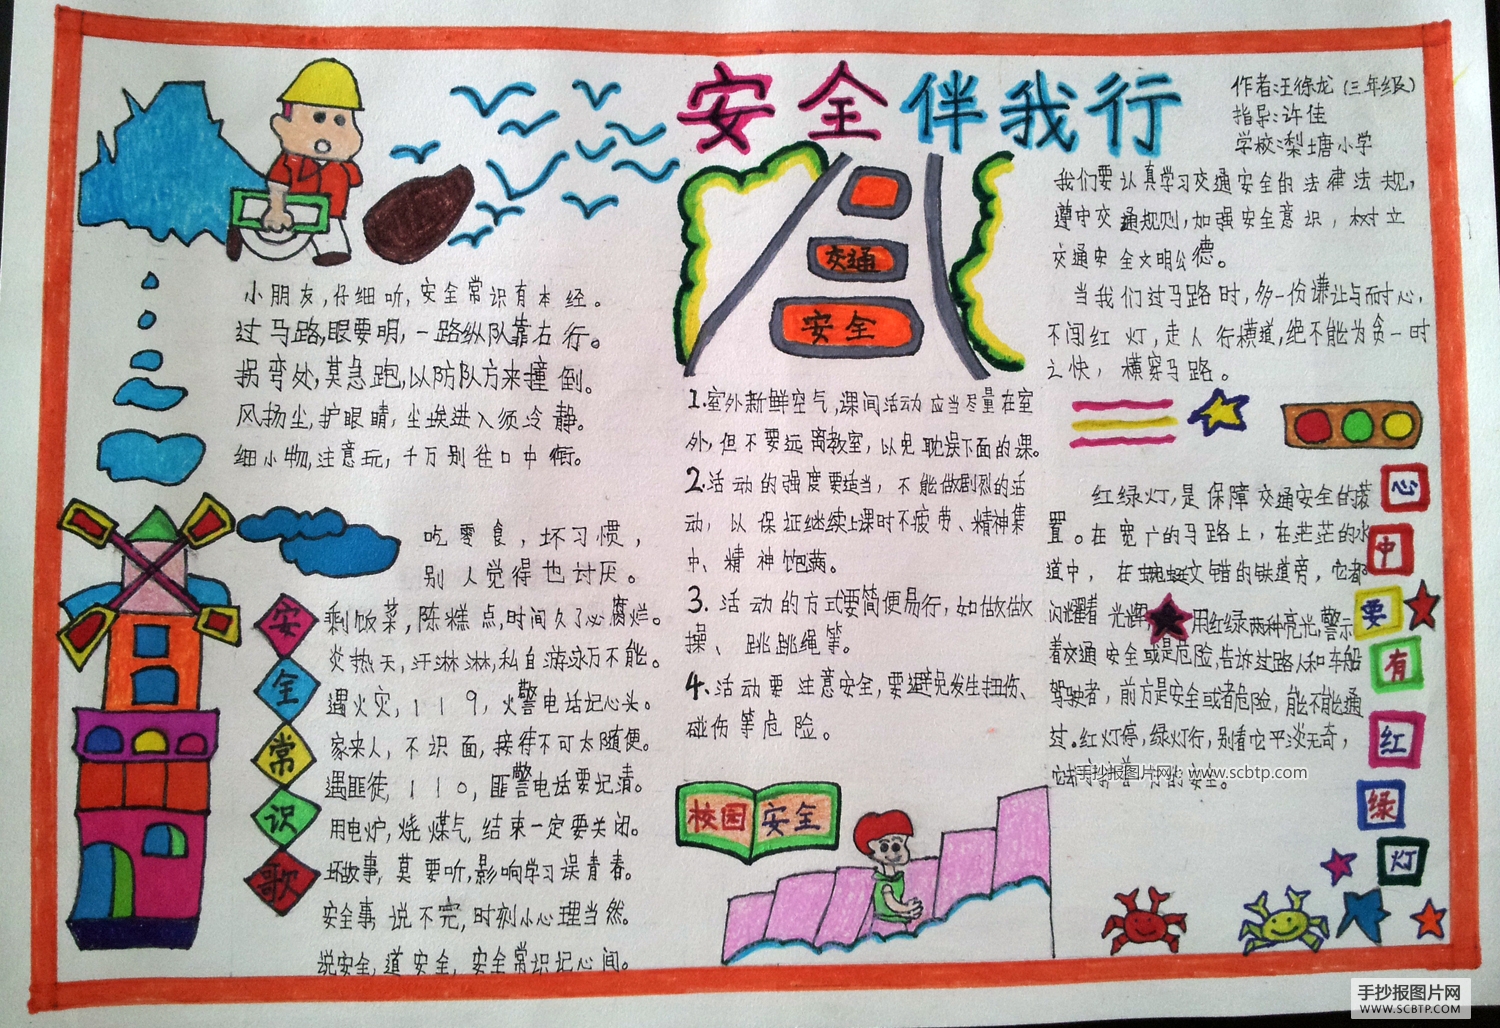 安全伴我行
作者:汪徐龙(三年级)
指导:许佳
学校:梨塘小学
小朋友,仔细听,安全常识有本经。
过马路,眼要明,一路纵队靠右行。
拐弯处,莫急跑,以防队方来撞倒。
风扬尘,护眼睛,尘埃进入须冷静。
细小物,注意玩,千万别往口中衔。
吃零食,坏习惯,
别人觉得也讨厌。
剩饭菜,陈糕点,时间久了必腐烂。
炎热天,汗淋淋,私自游泳万不能。
遇火灾,119,火警电话记心头。
家来人,不识面,接待不可太随便。
遇匪徒,110,匪警电话要记清。
用电炉,烧煤气,结束一定要关闭。
坏故事,莫要听,影响学习误青春。
安全事,说不完,时刻小心理当然。
说安全,道安全,安全常识记心间。
安
全
常
识
歌
交通
安全
1.室外新鲜空气,课间活动应当尽量在室
外,但不要远离教室,以免耽误下面的课。
2.活动的强度要适当,不能做剧烈的活
动,以保证继续上课时不疲劳、精神集
中、精神饱满。
3.活动的方式要简便易行,如做做
操、跳跳绳等。
4.活动要注意安全,要避免发生扭伤、
碰伤等危险。
校园 安全
我们要认真学习交通安全的法律法规,
遵守交通规则,加强安全意识,树立
交通安全文明公德。
当我们过马路时,多一份谦让与耐心,
不闯红灯,走人行横道,绝不能为贪一时
之快,横穿马路。
红绿灯,是保障交通安全的装
置。在宽广的马路上,在茫茫的水
道中,在蜿蜒交错的铁道旁,它都
闪耀着光辉,用红绿两种亮光,警示
着交通安全或是危险,告诉过路人和车船
驾驶者,前方是安全或者危险,能不能通
过。红灯停,绿灯行,别看它平淡无奇,
的安全。
心
中
要
有
红
绿
灯
手抄报图片网:www.scbtp.com
手抄报图片网
WWW.SCBTP.COM